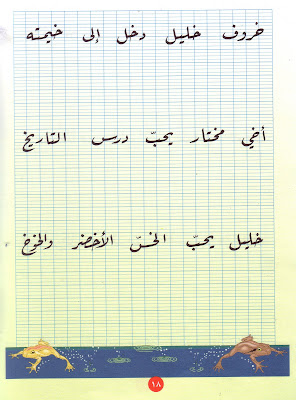 خروف خليل دخل إلى خيمته
أخي مختار يحبّ درس التاريخ
خليل يحبّ الخسّ الأخضر والخوخ
١٨